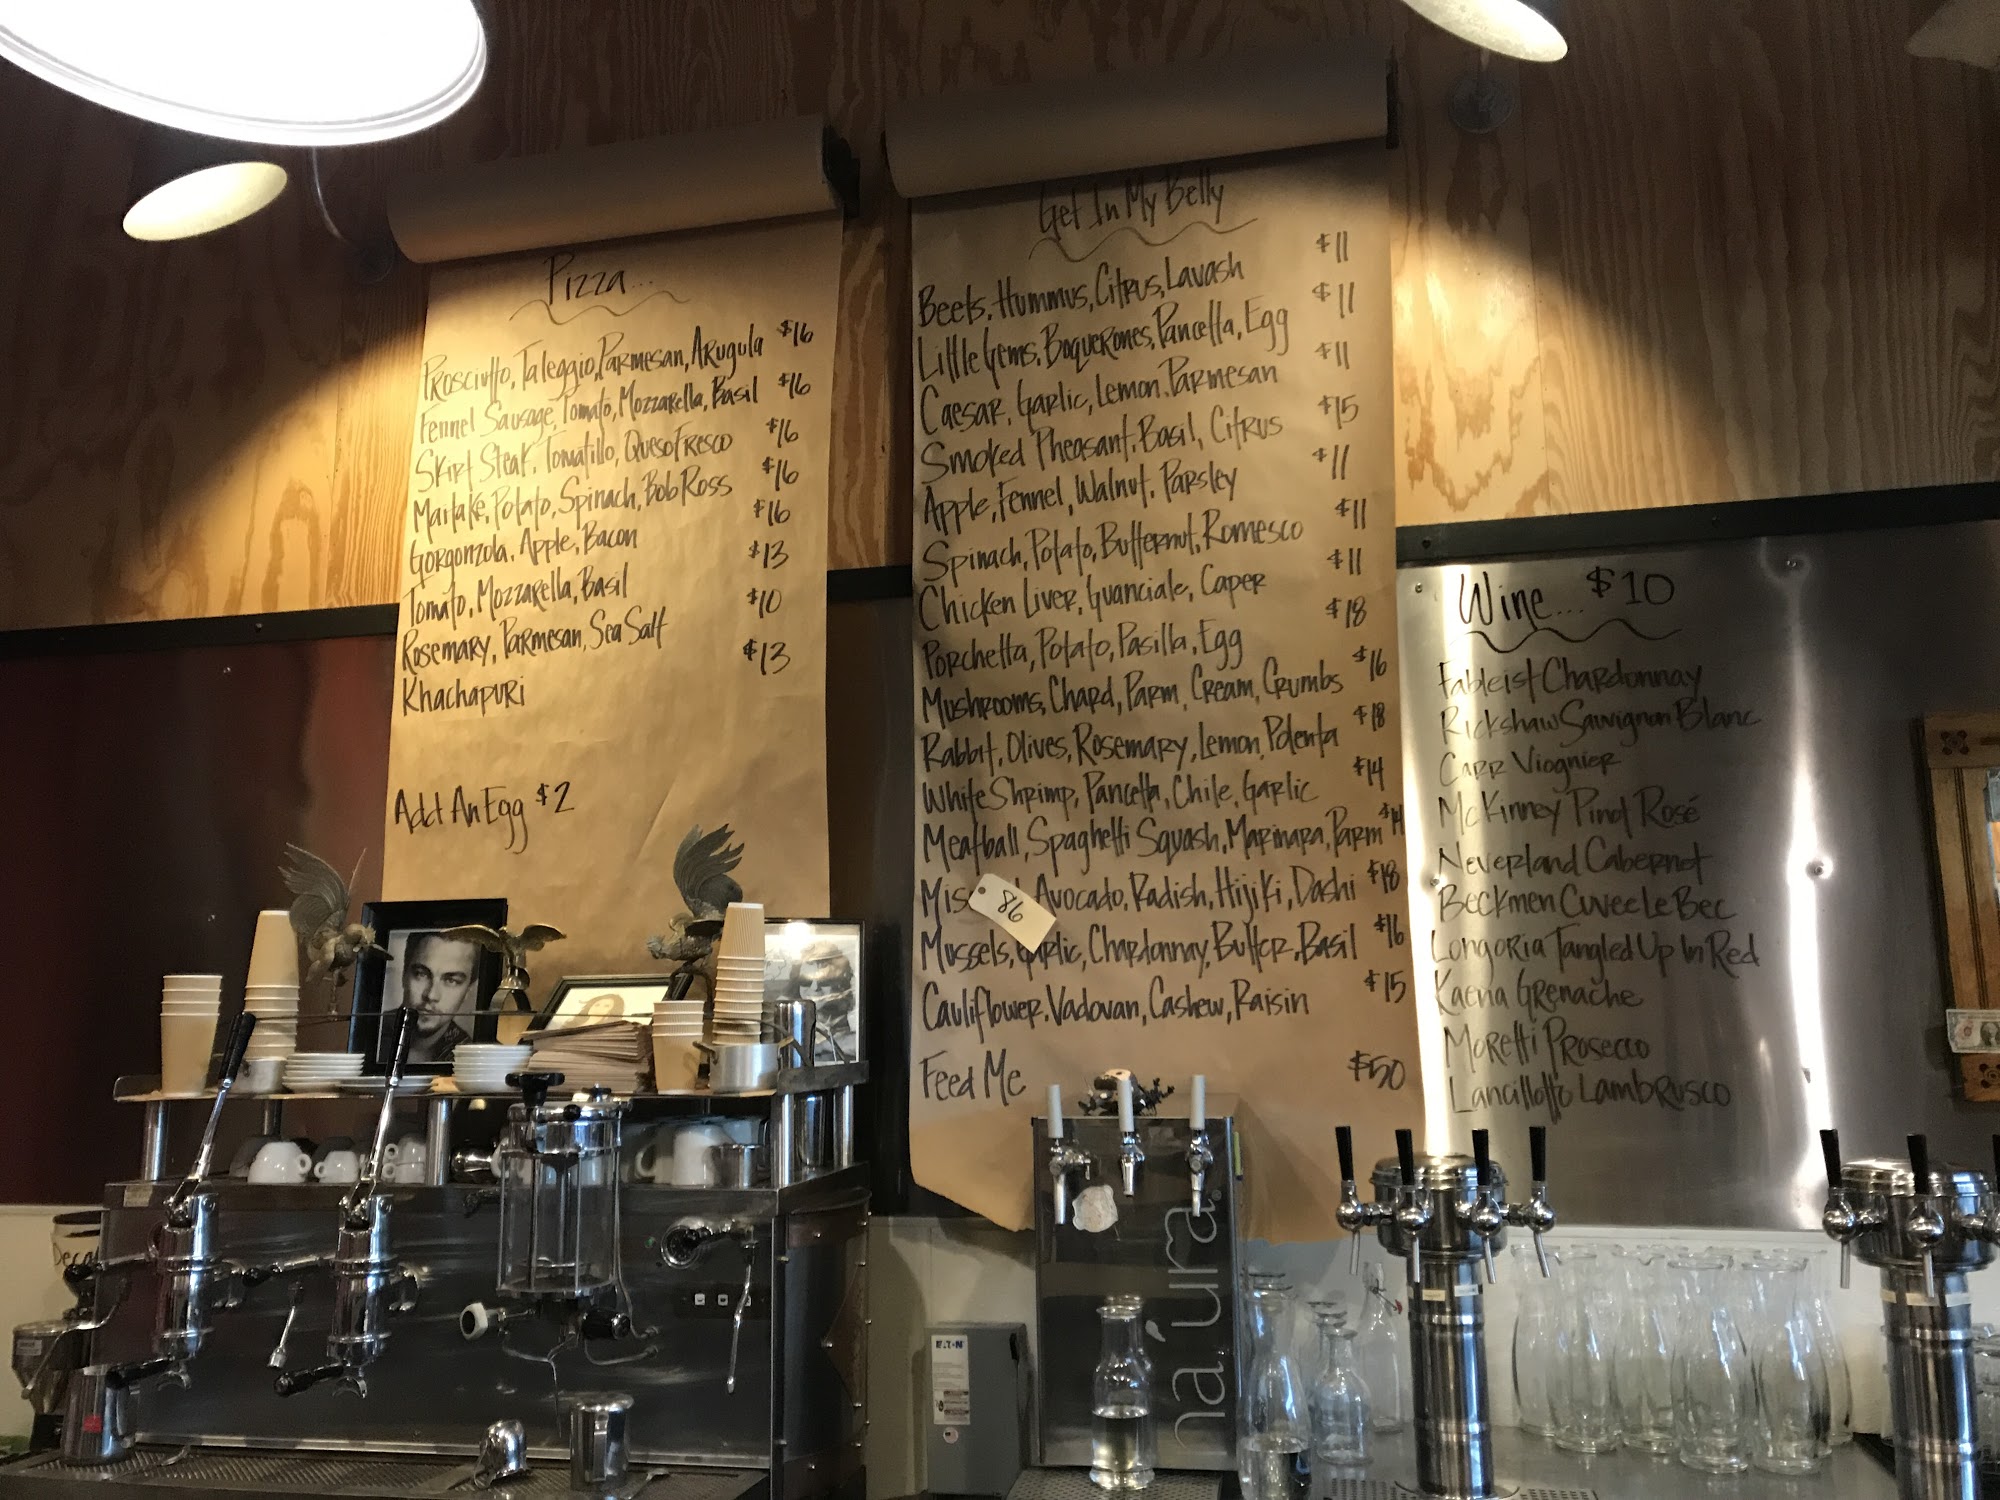 Pizza...
Prosciutto, Taleggio, Parmesan, Arugula $16
Fennel Sausage, Tomato, Mozzarella, Basil $16
Skirt Steak, Tomatillo, Queso Fresco $16
Maitake, Potato, Spinach, Bob Ross $16
Gorgonzola, Apple, Bacon $16
Tomato, Mozzarella, Basil $13
Rosemary, Parmesan, Sea Salt $10
Khachapuri $13
Add An Egg $2
Get In My Belly
Beets, Hummus, Citrus, Lavash $11
Little Gems, Boquerones, Pancetta, Egg $11
Caesar, Garlic, Lemon, Parmesan $11
Smoked Pheasant, Basil, Citrus $15
Apple, Fennel, Walnut, Parsley $11
Spinach, Potato, Butternut, Romesco $11
Chicken Liver, Guanciale, Caper $11
Porchetta, Potato, Pasilla, Egg $18
Mushrooms, Chard, Parm, Cream, Crumbs $16
Rabbit, Olives, Rosemary, Lemon, Polenta $18
White Shrimp, Pancetta, Chile, Garlic $14
Meatball, Spaghetti Squash, Marinara, Parm $14
86 Avocado, Radish, Hijiki, Dashi $18
Mussels, Garlic, Chardonnay, Butter, Basil $16
Cauliflower, Vadovan, Cashew, Raisin $15
Feed Me $50
Wine... $10
Fableist Chardonnay
Rickshaw Sauvignon Blanc
Carr Viognier
McKinney Pinot Rosé
Neverland Cabernet
Beckmen Cuvee Le Bec
Longoria Tangled Up In Red
Kaena Grenache
Moretti Prosecco
Lancillotto Lambrusco
na'ura
EATON